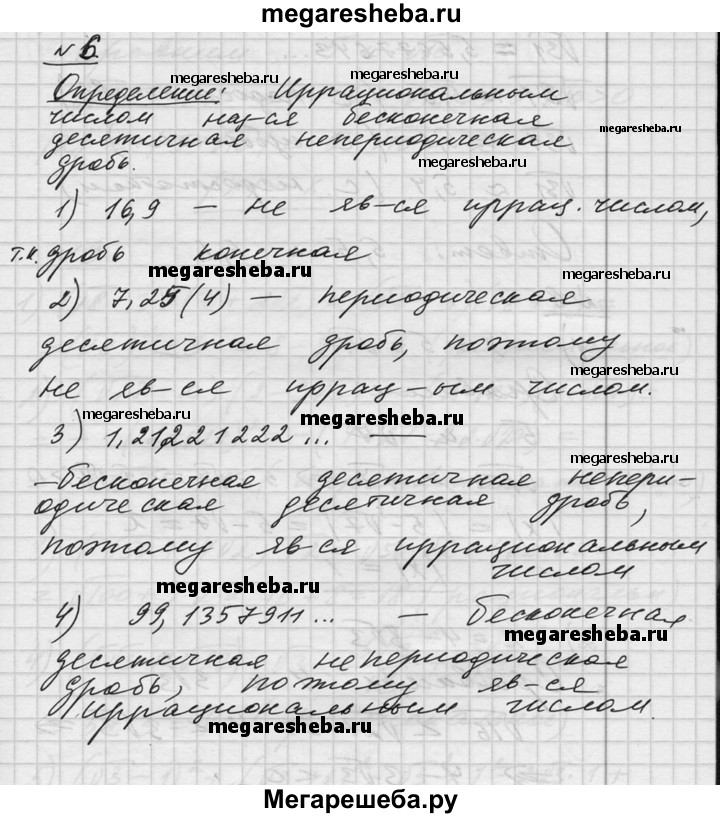 megaresheba.ru
№ 6
megaresheba.ru
megaresheba.ru
Определение: Иррациональным
числом наз-ся бесконечная
megaresheba.ru
десятичная непериодическая
дробь.
megaresheba.ru
1) 16,9 — не яв-ся иррац. числом,
т.к. дробь конечная
megaresheba.ru
megaresheba.ru
2) 7,25(4) — периодическая
десятичная дробь, поэтому
не яв-ся иррац-ым числом.
megaresheba.ru
megaresheba.ru
3) 1,21221222... —
megaresheba.ru
-бесконечная десятичная непери-
одическая десятичная дробь,
поэтому яв-ся иррациональным
числом
megaresheba.ru
4) 99,1357911... — бесконечная
megaresheba.ru
десятичная непериодическая
дробь, поэтому яв-ся
иррациональным числом.
megaresheba.ru
Мегарешеба.ру